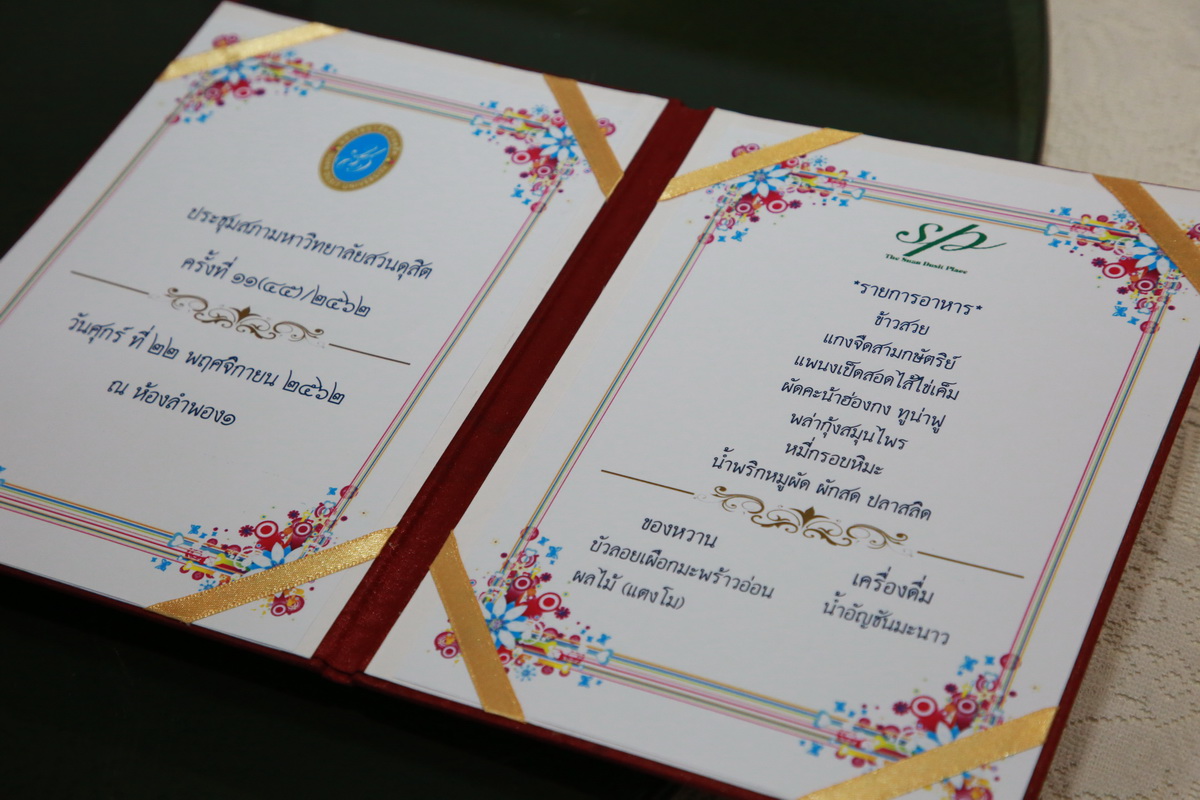 ประชุมสภามหาวิทยาลัยสวนดุสิต
ครั้งที่ ๑๑(๔๕)/๒๕๖๒
วันศุกร์ ที่ ๒๒ พฤศจิกายน ๒๕๖๒
ณ ห้องลำพอง๑
sp
The Suan Dusit Place
*รายการอาหาร*
ข้าวสวย
แกงจืดสามกษัตริย์
แพนงเป็ดสอดไส้ไข่เค็ม
ผัดคะน้าฮ่องกง ทูน่าฟู
พล่ากุ้งสมุนไพร
หมี่กรอบหิมะ
น้ำพริกหมูผัด ผักสด ปลาสลิด
ของหวาน
บัวลอยเผือกมะพร้าวอ่อน
ผลไม้ (แตงโม)
เครื่องดื่ม
น้ำอัญชันมะนาว